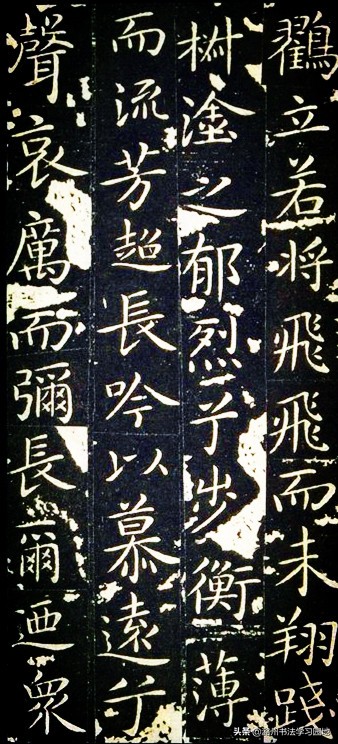 鶴立若将飛飛而未翔踐
椒塗之郁烈兮步衡薄
而流芳超長吟以慕遠兮
聲哀厲而彌長爾迺衆
头条 @州书法学习园地